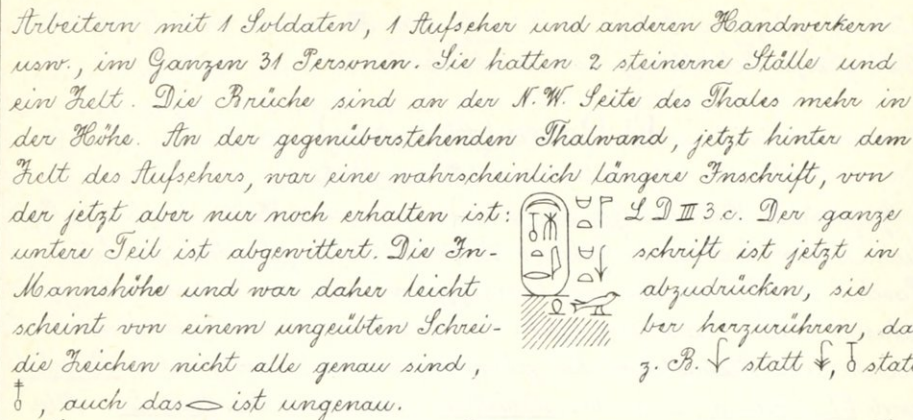 Arbeitern mit 1 Soldaten, 1 Aufseher und anderen Handwerkern
usw., im Ganzen 31 Personen. Sie hatten 2 steinerne Ställe und
ein Zelt. Die Brüche sind an der N. W. Seite des Thales mehr in
der Höhe. An der gegenüberstehenden Thalwand, jetzt hinter dem
Zelt des Aufsehers, war eine wahrscheinlich längere Inschrift, von
der jetzt aber nur noch erhalten ist: L D III 3 c. Der ganze
untere Teil ist abgewittert. Die In- schrift ist jetzt in
Mannshöhe und war daher leicht abzudrücken, sie
scheint von einem ungeübten Schrei- ber herzurühren, da
die Zeichen nicht alle genau sind, z. B. statt , statt
, auch das ist ungenau.